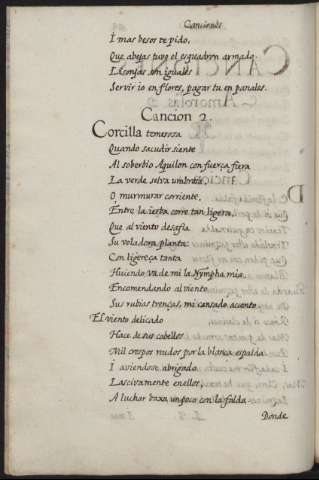 Canciones
I mas besos te pido,
Que abejas tuvo el esquadron armado
Lisonjas son iguales
Servir io en flores, pagar tu en panales.
Cancion 2.
Corcilla temerosa
Quando sacudir siente
Al soberbio Aquilon con fuerça fiera
La verde selva umbria,
O murmurar corriente,
Entre la ierba corre tan ligera,
Que al viento desafia
Su voladora planta:
Con ligereça tanta
Huiendo va de mi la Nympha mia,
Encomendando al viento,
Sus rubias trenças, mi cansado acento.
El viento delicado
Hace de sus cabellos
Mil crespos nudos por la blanca espalda
I aviendose abrigado
Lascivamente en ellos,
A luchar baxa un poco con la falda.
Donde